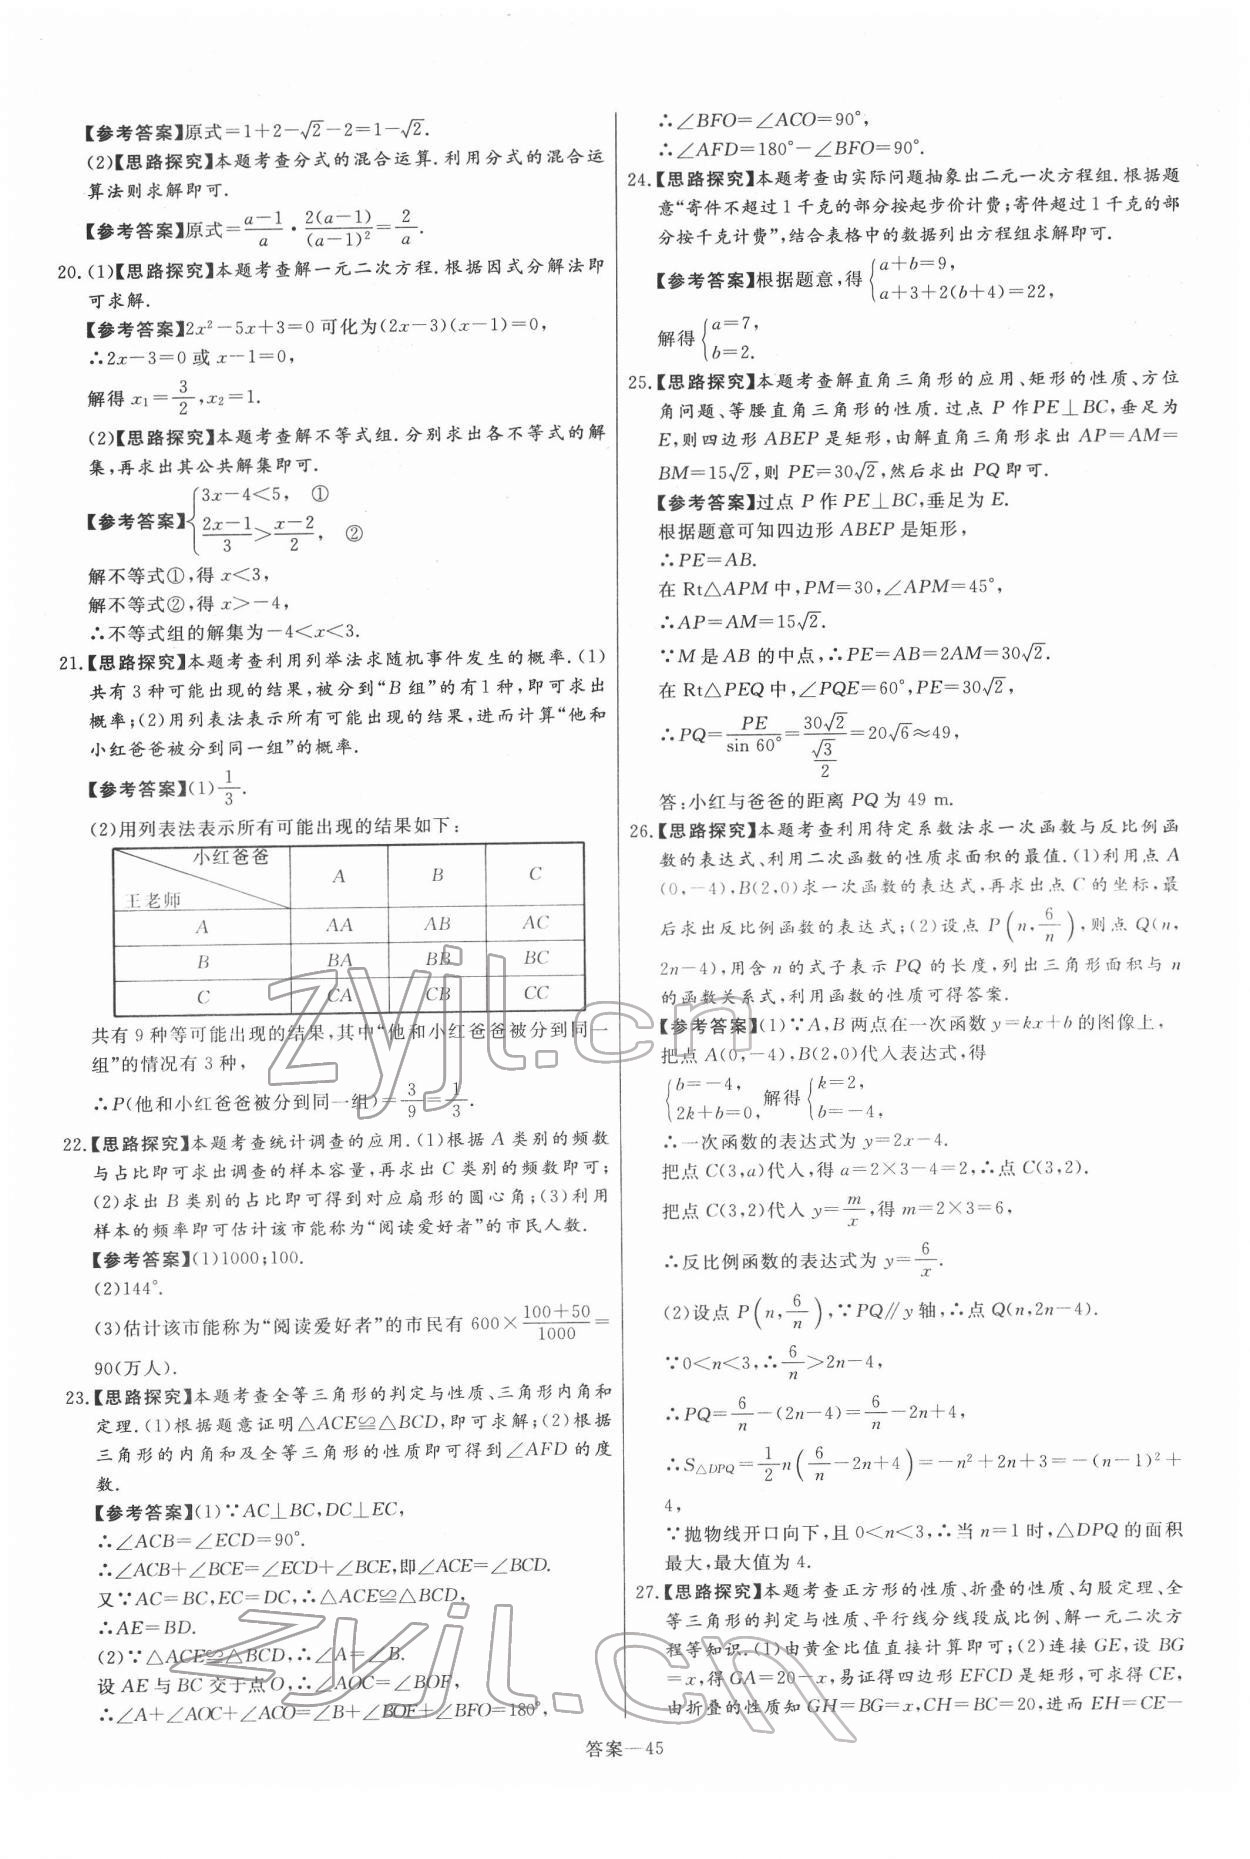 【参考答案】原式=1+2-√2-2=1-√2.
(2)【思路探究】本题考查分式的混合运算.利用分式的混合运
算法则求解即可.
【参考答案】原式=(a-1)/a·2(a-1)/(a-1)²=2/a.
20.(1)【思路探究】本题考查解一元二次方程.根据因式分解法即
可求解.
【参考答案】2x²-5x+3=0可化为(2x-3)(x-1)=0,
∴2x-3=0或x-1=0,
解得x₁=3/2,x₂=1.
(2)【思路探究】本题考查解不等式组.分别求出各不等式的解
集,再求出其公共解集即可.
【参考答案】{3x-4<5, ①
(2x-1)/3>(x-2)/2, ②
解不等式①,得x<3,
解不等式②,得x>-4,
∴不等式组的解集为-4<x<3.
21.【思路探究】本题考查利用列举法求随机事件发生的概率.(1)
共有3种可能出现的结果,被分到“B组”的有1种,即可求出
概率;(2)用列表法表示所有可能出现的结果,进而计算“他和
小红爸爸被分到同一组”的概率.
【参考答案】(1)1/3.
(2)用列表法表示所有可能出现的结果如下:
小红爸爸 A B C
王老师
A AA AB AC
B BA BB BC
C CA CB CC
共有9种等可能出现的结果,其中“他和小红爸爸被分到同一
组”的情况有3种,
∴P(他和小红爸爸被分到同一组)=3/9=1/3.
22.【思路探究】本题考查统计调查的应用.(1)根据A类别的频数
与占比即可求出调查的样本容量,再求出C类别的频数即可;
(2)求出B类别的占比即可得到对应扇形的圆心角;(3)利用
样本的频率即可估计该市能称为“阅读爱好者”的市民人数.
【参考答案】(1)1000;100.
(2)144°.
(3)估计该市能称为“阅读爱好者”的市民有600×(100+50)/1000=
90(万人).
23.【思路探究】本题考查全等三角形的判定与性质、三角形内角和
定理.(1)根据题意证明△ACE≌△BCD,即可求解;(2)根据
三角形的内角和及全等三角形的性质即可得到∠AFD的度
数.
【参考答案】(1)∵AC⊥BC,DC⊥EC,
∴∠ACB=∠ECD=90°.
∴∠ACB+∠BCE=∠ECD+∠BCE,即∠ACE=∠BCD.
又∵AC=BC,EC=DC,∴△ACE≌△BCD.
∴AE=BD.
(2)∵△ACE≌△BCD,∴∠A=∠B.
设AE与BC交于点O,∴∠AOC=∠BOF,
∴∠A+∠AOC+∠ACO=∠B+∠BOF+∠BFO=180°,
∴∠BFO=∠ACO=90°,
∴∠AFD=180°-∠BFO=90°.
24.【思路探究】本题考查由实际问题抽象出二元一次方程组.根据题
意“寄件不超过1千克的部分按起步价计费;寄件超过1千克的部
分按千克计费”,结合表格中的数据列出方程组求解即可.
【参考答案】根据题意,得{a+b=9,
a+3+2(b+4)=22,
解得{a=7,
b=2.
25.【思路探究】本题考查解直角三角形的应用、矩形的性质、方位
角问题、等腰直角三角形的性质.过点P作PE⊥BC,垂足为
E,则四边形ABEP是矩形,由解直角三角形求出AP=AM=
BM=15√2,则PE=30√2,然后求出PQ即可.
【参考答案】过点P作PE⊥BC,垂足为E.
根据题意可知四边形ABEP是矩形,
∴PE=AB.
在Rt△APM中,PM=30,∠APM=45°,
∴AP=AM=15√2.
∵M是AB的中点,∴PE=AB=2AM=30√2.
在Rt△PEQ中,∠PQE=60°,PE=30√2,
∴PQ=PE/sin 60°=30√2/(√3/2)=20√6≈49,
答:小红与爸爸的距离PQ为49 m.
26.【思路探究】本题考查利用待定系数法求一次函数与反比例函
数的表达式、利用二次函数的性质求面积的最值.(1)利用点A
(0,-4),B(2,0)求一次函数的表达式,再求出点C的坐标,最
后求出反比例函数的表达式;(2)设点P(n,6/n),则点Q(n,
2n-4),用含n的式子表示PQ的长度,列出三角形面积与n
的函数关系式,利用函数的性质可得答案.
【参考答案】(1)∵A,B两点在一次函数y=kx+b的图像上,
把点A(0,-4),B(2,0)代入表达式,得
{b=-4,
2k+b=0, 解得{k=2,
b=-4,
∴一次函数的表达式为y=2x-4.
把点C(3,a)代入,得a=2×3-4=2,∴点C(3,2).
把点C(3,2)代入y=m/x,得m=2×3=6,
∴反比例函数的表达式为y=6/x.
(2)设点P(n,6/n),∵PQ∥y轴,∴点Q(n,2n-4).
∵0<n<3,∴6/n>2n-4,
∴PQ=6/n-(2n-4)=6/n-2n+4,
∴S△DPQ=1/2n(6/n-2n+4)=-n²+2n+3=-(n-1)²+
4,
∵抛物线开口向下,且0<n<3,∴当n=1时,△DPQ的面积
最大,最大值为4.
27.【思路探究】本题考查正方形的性质、折叠的性质、勾股定理、全
等三角形的判定与性质、平行线分线段成比例、解一元二次方
程等知识.(1)由黄金比值直接计算即可;(2)连接GE,设BG
=x,得GA=20-x,易证得四边形EFCD是矩形,可求得CE,
由折叠的性质知GH=BG=x,CH=BC=20,进而EH=CE-
答案—45
zyjl.cn
zyjl.cn